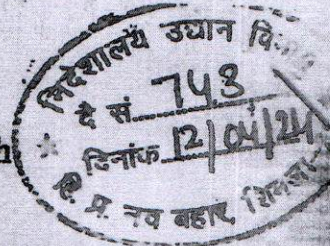 निदेशालय उद्यान वि
दै सं. 743
दिनांक 12/04/24
हि. प्र. नव बहार, शिमला